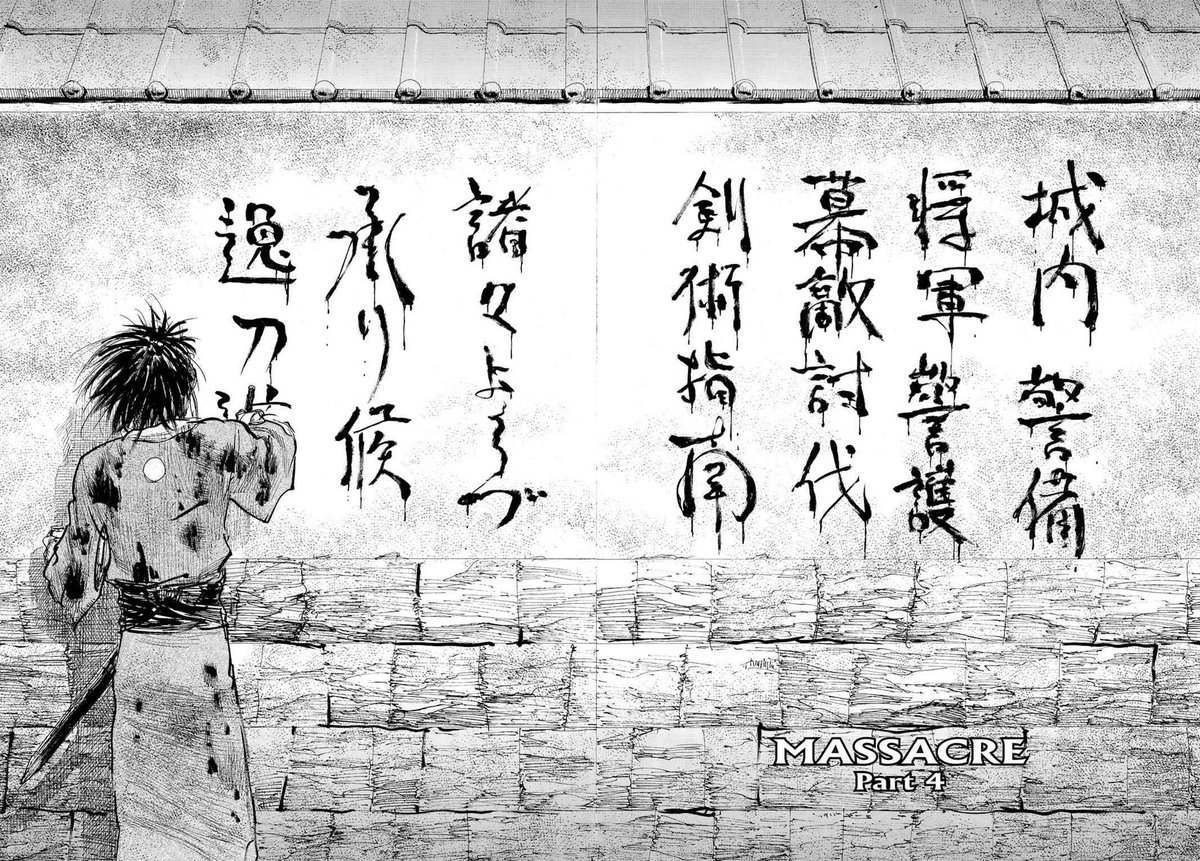 城内 警備
将軍 警護
幕敵討伐
剣術指南
諸々よろづ
承り候
逸刀
MASSACRE
Part 4